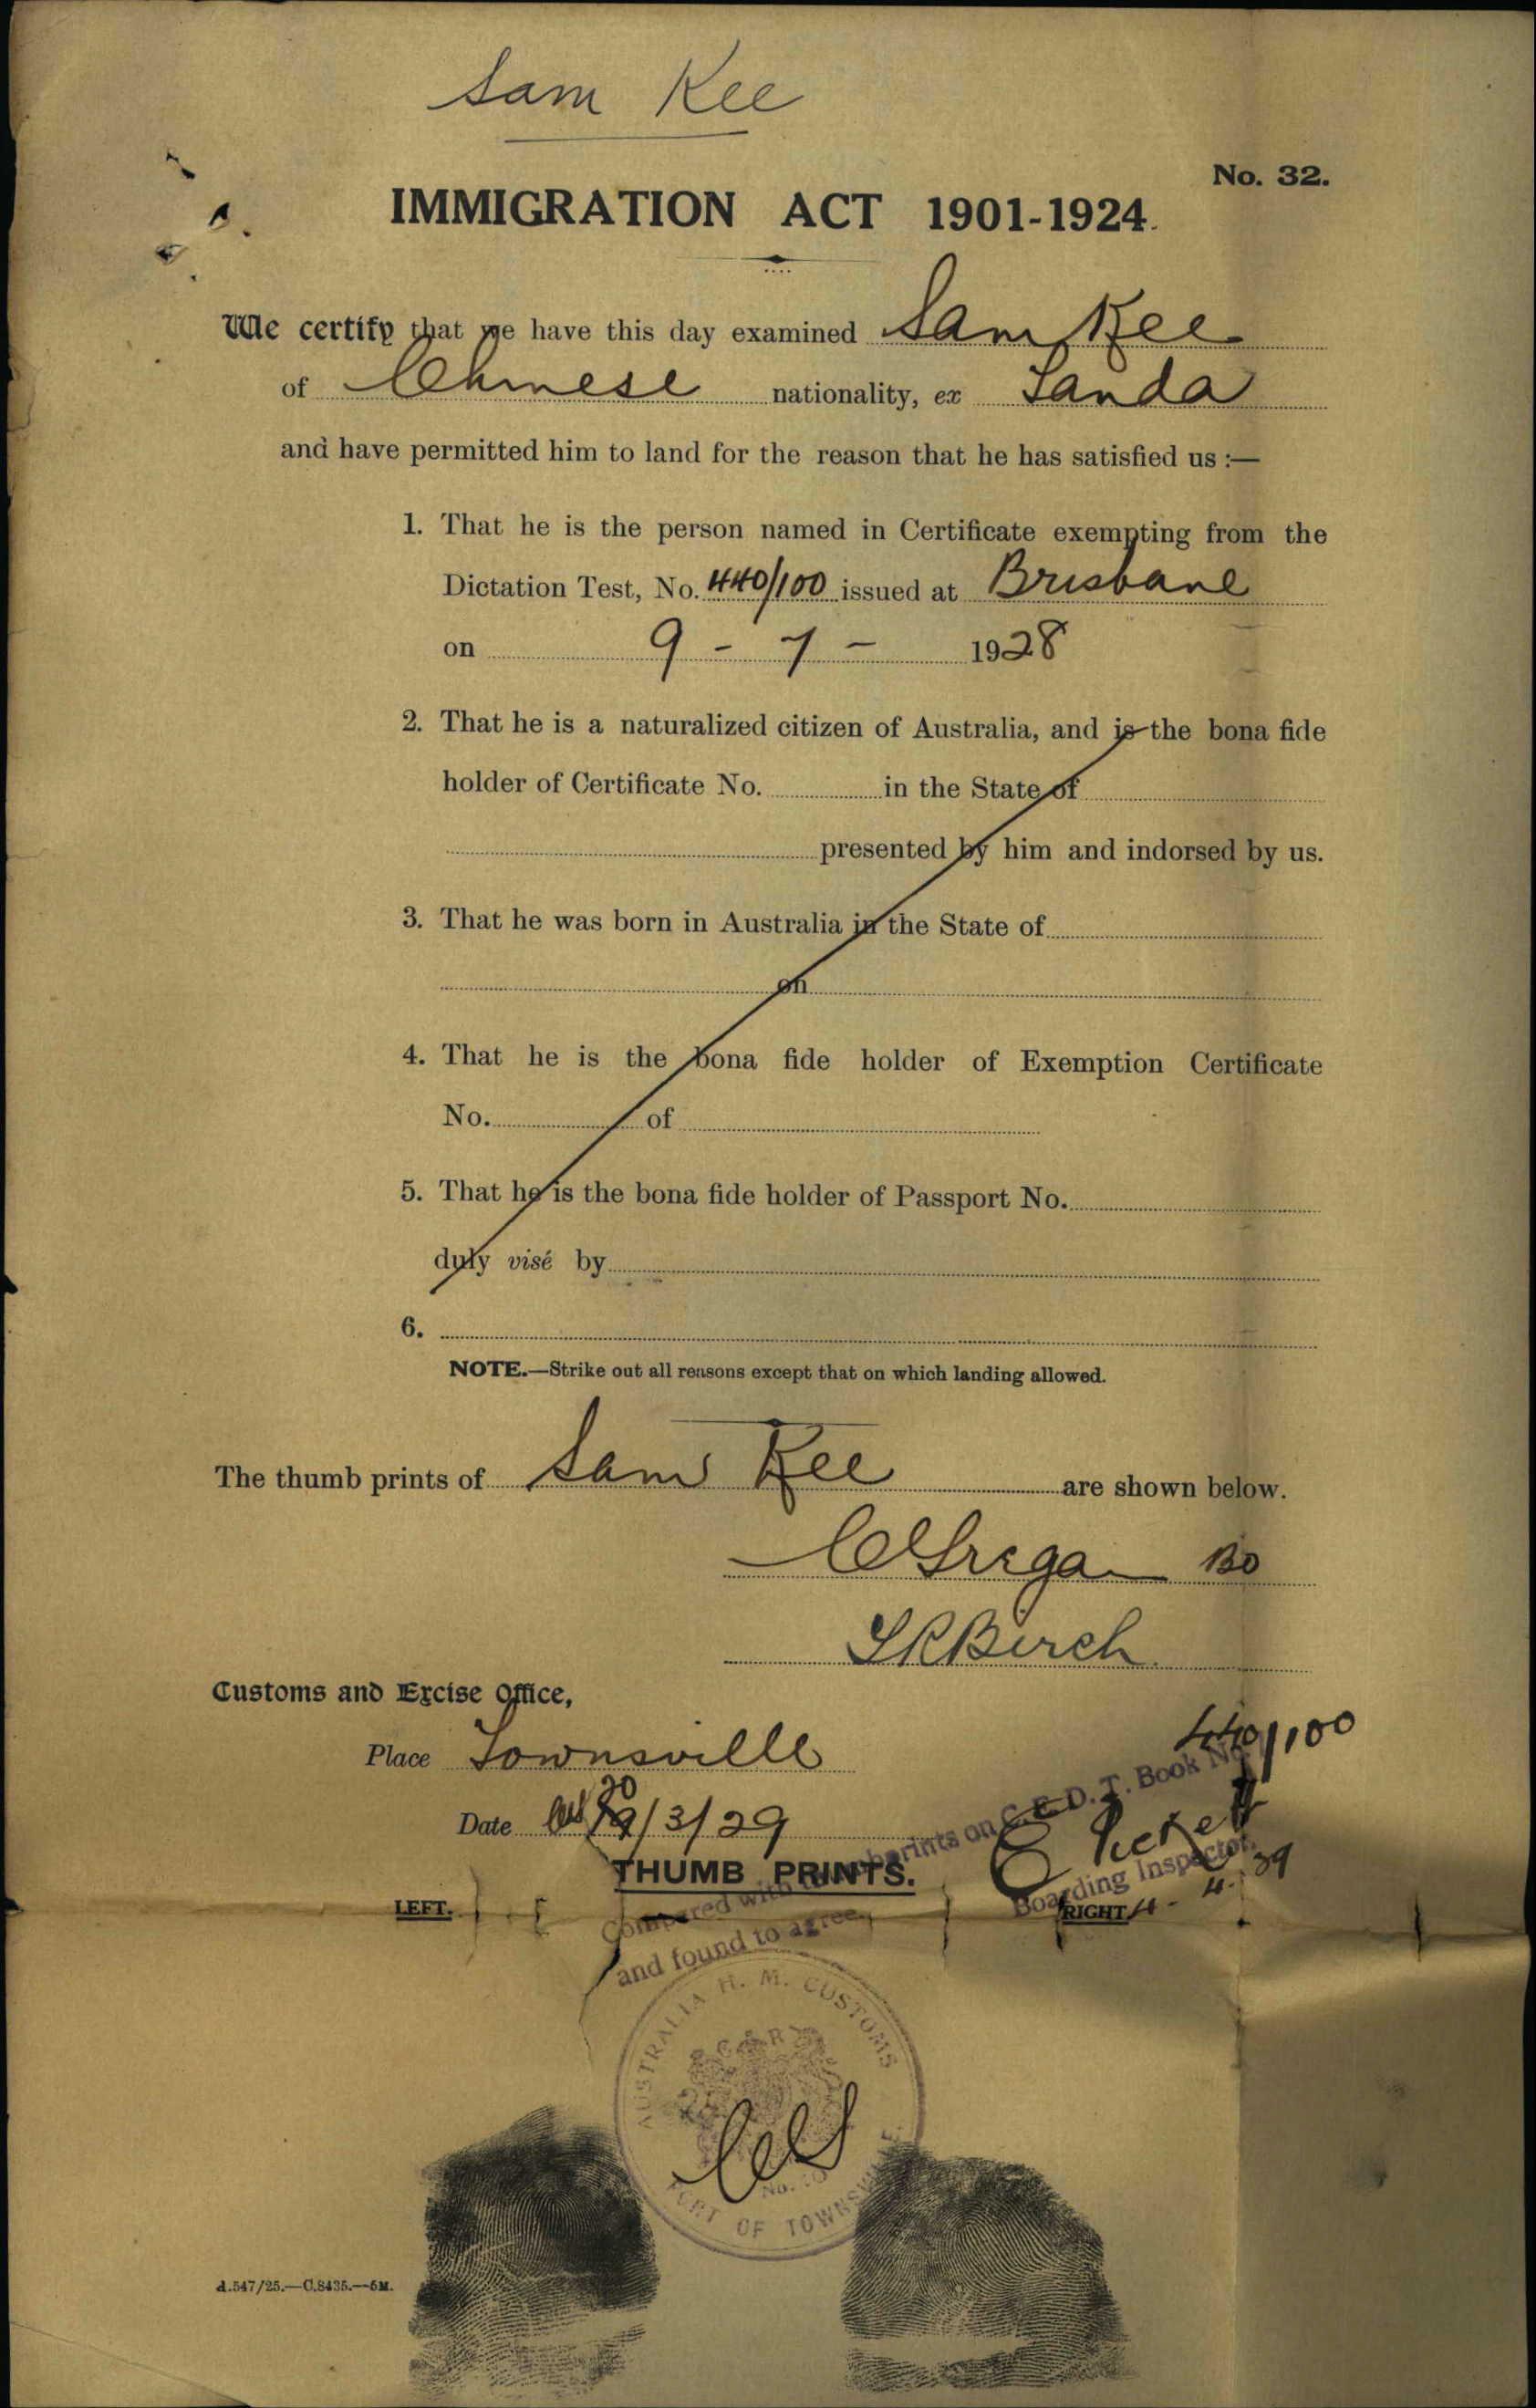 Sam Kee
No. 32.
IMMIGRATION ACT 1901-1924.
We certify that we have this day examined Sam Kee
of Chinese nationality, ex Tanda
and have permitted him to land for the reason that he has satisfied us :—
1. That he is the person named in Certificate exempting from the
Dictation Test, No. 440/100 issued at Brisbane
on 9 - 7 - 1928
2. That he is a naturalized citizen of Australia, and is the bona fide
holder of Certificate No. in the State of
presented by him and indorsed by us.
3. That he was born in Australia in the State of
on
4. That he is the bona fide holder of Exemption Certificate
No. of
5. That he is the bona fide holder of Passport No.
duly visé by
6.
NOTE.—Strike out all reasons except that on which landing allowed.
The thumb prints of Sam Kee are shown below.
BO
Birch
Customs and Excise Office,
Place Townsville
440/100
Date 20/3/29
Compared with thumbprints on C.E.D.T. Book No.
and found to agree.
Boarding Inspector.
4 - 4 - 29
THUMB PRINTS.
LEFT.
RIGHT
AUSTRALIA H. M. CUSTOMS
G R
No.
PORT OF TOWNSVILLE
A.547/25.—C.8435.—5M.